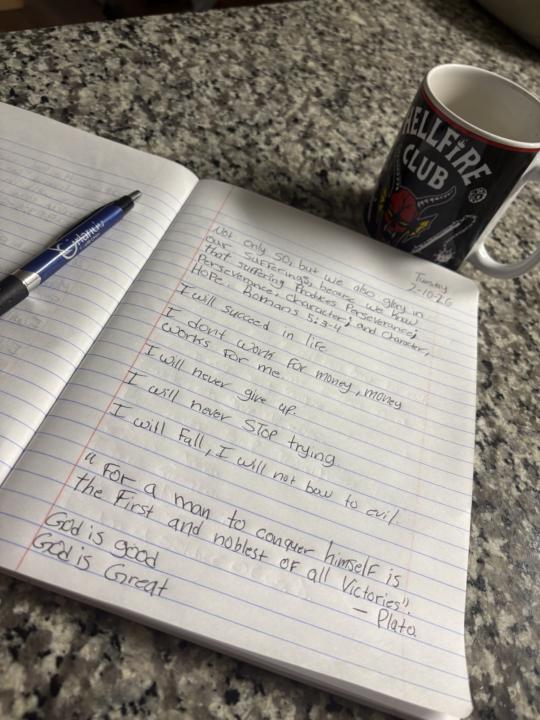 HELLFIRE
CLUB
Tuesday
2-10-26
Not only so, but we also glory in
our sufferings, because we know
that suffering Produces Perseverance;
Perseverance, Character; and Character,
Hope. Romans 5:3-4
I will succeed in life
I dont work for money, money
works for me
I will never give up.
I will never STOP trying.
I will Fall, I will not bow to evil.
"For a man to conquer himself is
the First and noblest of all Victories".
— Plato
God is good
God is Great